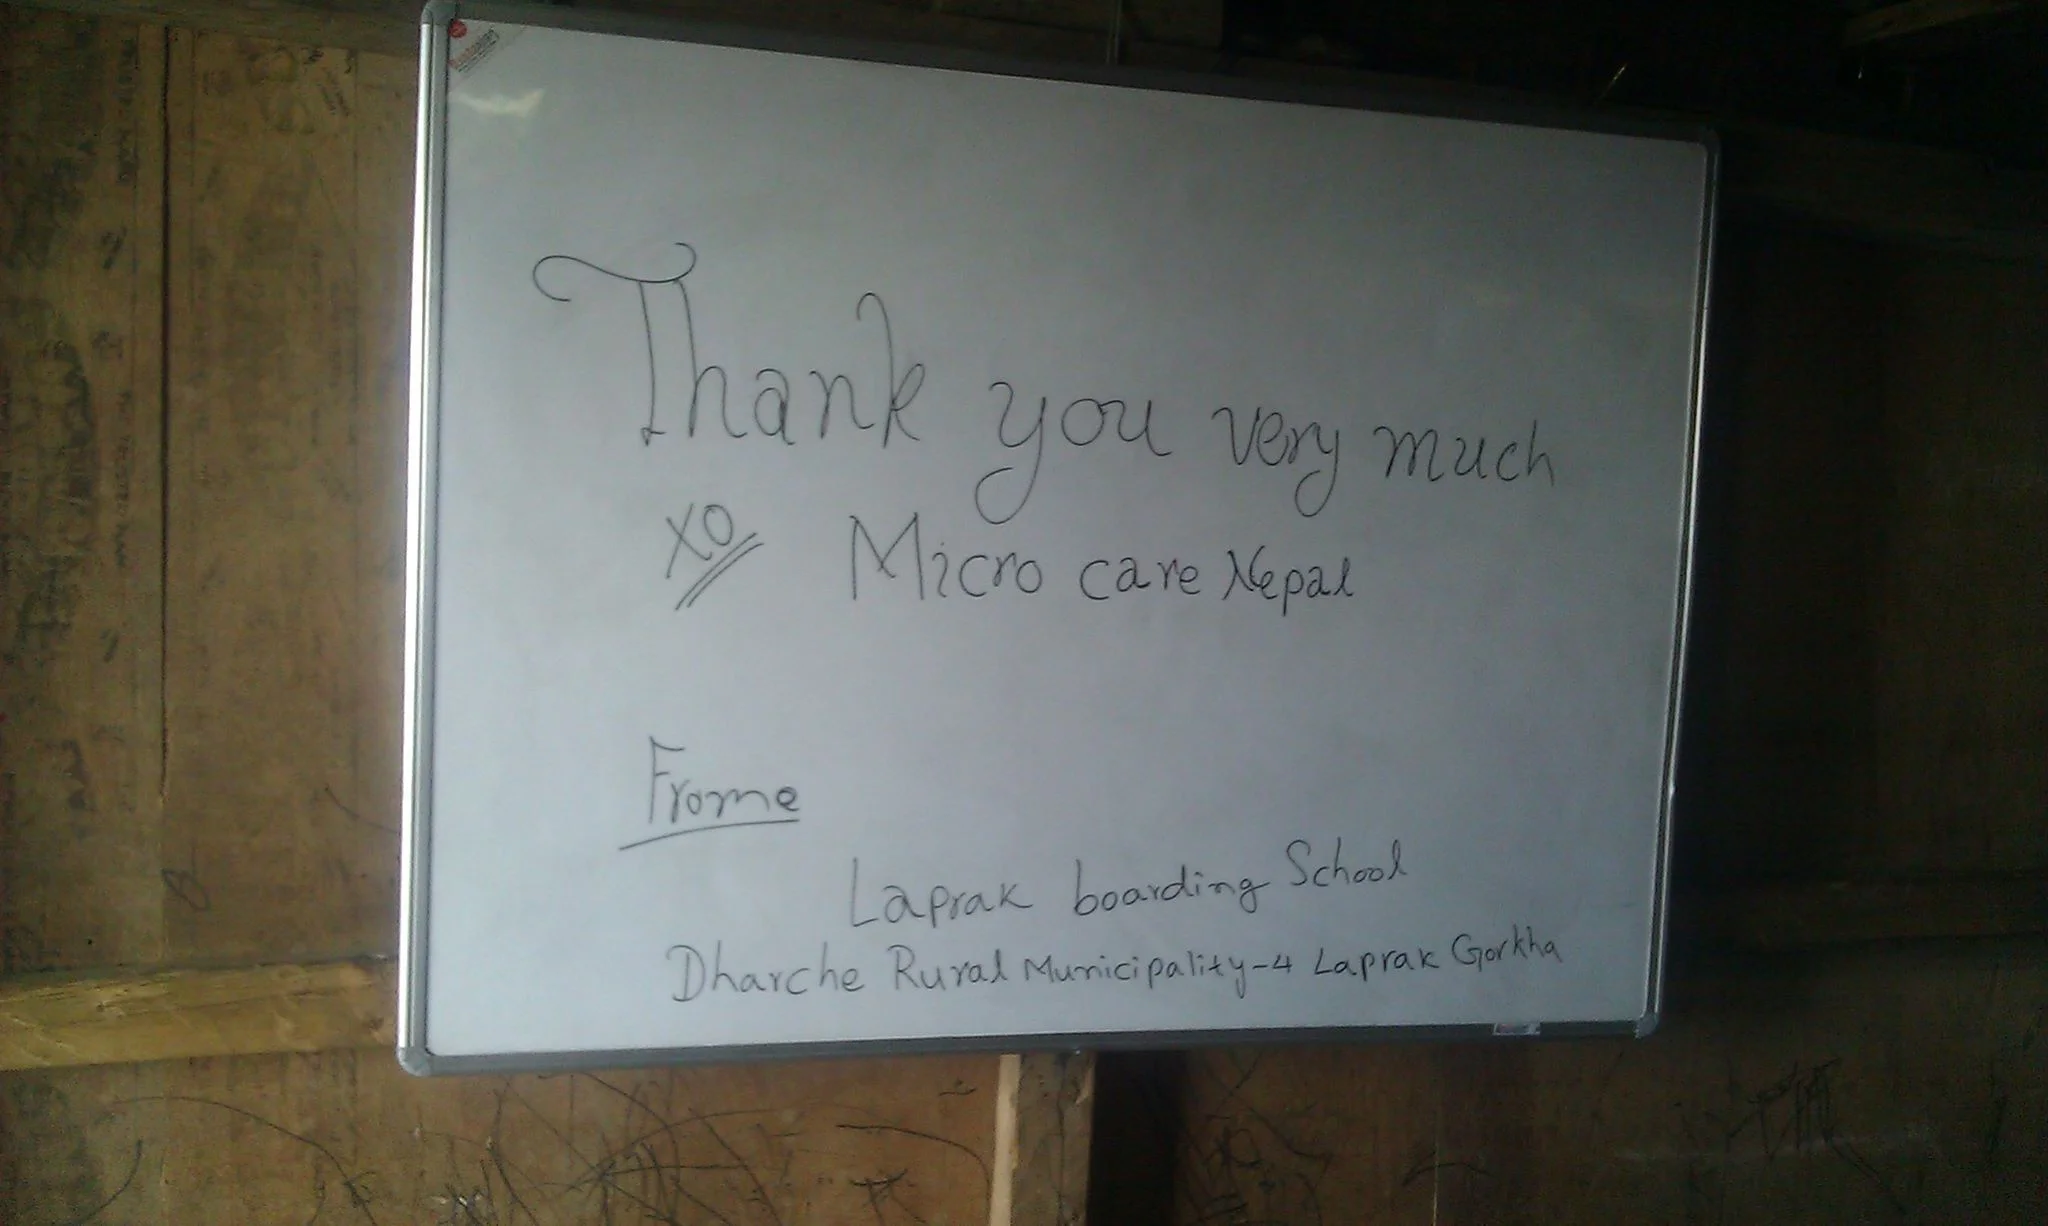 Thank you very much
XO Micro care Nepal
Frome
Laprak boarding School
Dharche Rural Municipality-4 Laprak Gorkha